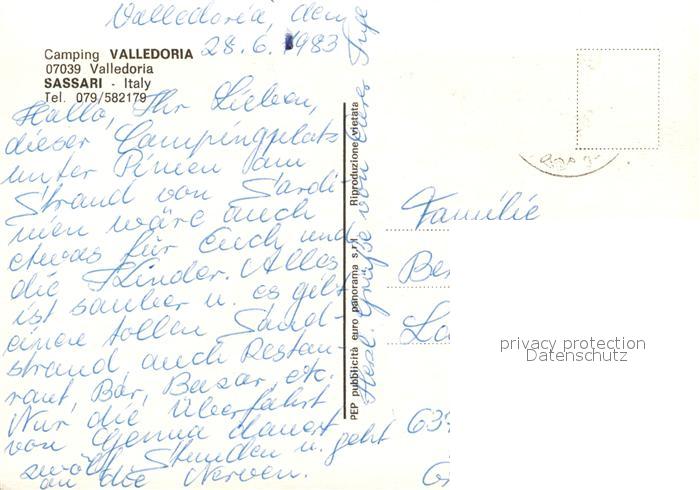 Valledoria, den
28.6.1983
Camping VALLEDORIA
07039 Valledoria
SASSARI - Italy
Tel. 079/582179
Hallo, Ihr Lieben,
dieser Campingplatz
unter Pinien am
Strand von Sardi-
nien wäre auch
etwas für Euch und
die Kinder. Alles
ist sauber u. es gibt
einen tollen Sand-
strand, auch Restau-
rant, Bar, Bazar, etc.
Nur die Überfahrt
von Genua dauert
zwölf Stunden u. geht
an die Nerven.
Herzl. Grüße von Eurer Inge
PEP pubblicità euro panorama s.r.l Riproduzione vietata
Familie
Be
La
63
G
privacy protection
Datenschutz